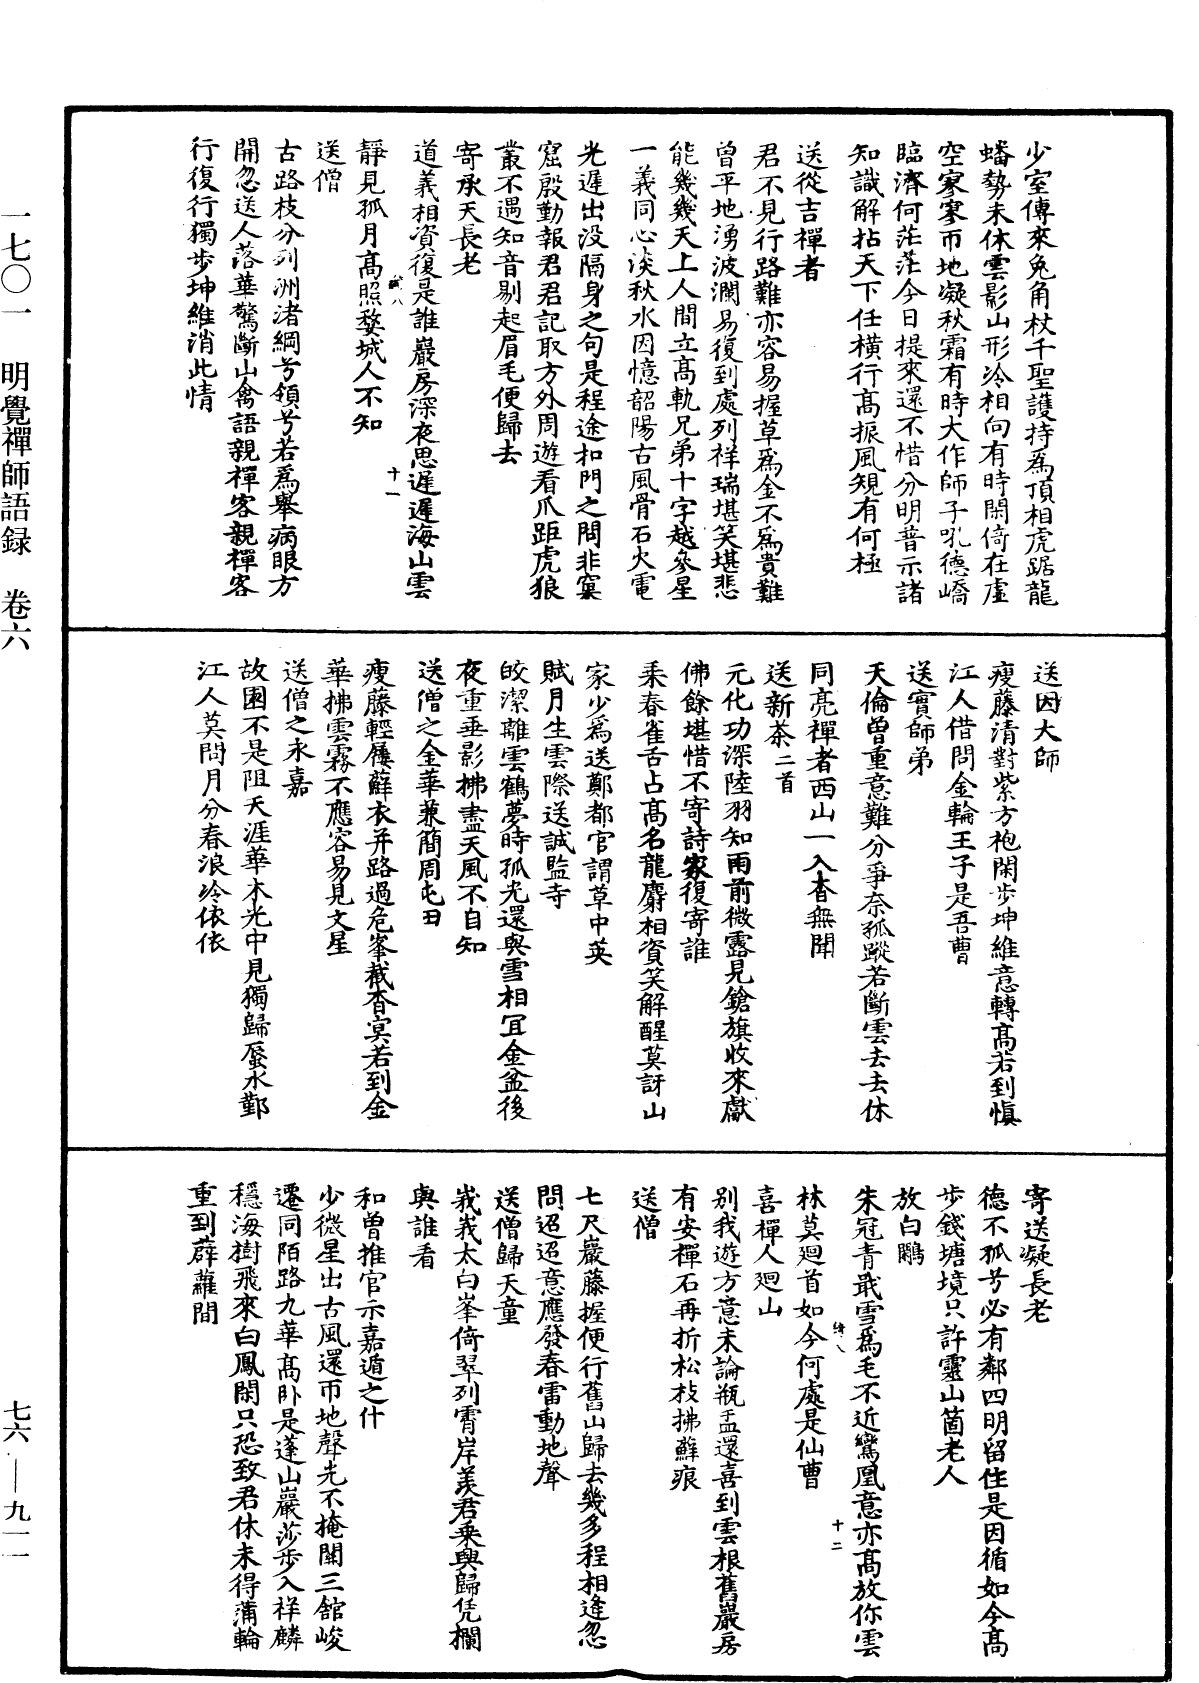 少室傳來兔角杖千聖護持為頂相虎踞龍
蟠勢未休雲影山形冷相向有時閑倚在虛
空寥寥帀地凝秋霜有時大作師子吼德嶠
臨濟何茫茫今日提來還不惜分明普示諸
知識解拈天下任橫行高振風規有何極
送從吉禪者
君不見行路難亦容易握草為金不為貴難
曾平地湧波瀾易復到處列祥瑞堪笑堪悲
能幾幾天上人間立高軌兄弟十字越參星
一義同心淡秋水因憶韶陽古風骨石火電
光遲出没隔身之句是程途扣門之問非窠
窟殷勤報君君記取方外周遊看爪距虎狼
叢不遇知音剔起眉毛便歸去
寄承天長老
道義相資復是誰巖房深夜思遲遲海山雲
靜見孤月高照婺城人不知
送僧
古路枝分列洲渚綱兮領兮若為舉病眼方
開忽送人落華驚斷山禽語親禪客親禪客
行復行獨步坤維消此情
十一
送因大師
瘦藤清對紫方袍閑步坤維意轉高若到慎
江人借問金輪王子是吾曹
送實師弟
天倫曾重意難分爭奈孤蹤若斷雲去去休
同亮禪者西山一入杳無聞
送新茶二首
元化功深陸羽知雨前微露見鎗旗收來獻
佛餘堪惜不寄詩家復寄誰
乘春雀舌占高名龍麝相資笑解醒莫訝山
家少為送鄭都官謂草中英
賦月生雲際送誠監寺
皎潔離雲鶴夢時孤光還與雪相冝金盆後
夜重垂影拂盡天風不自知
送僧之金華兼簡周屯田
瘦藤輕屨蘚衣幷路過危峯截杳冥若到金
華拂雲霧不應容易見文星
送僧之永嘉
故園不是阻天涯華木光中見獨歸蜃水鄞
江人莫問月分春浪冷依依
寄送凝長老
德不孤兮必有鄰四明留住是因循如今高
步錢塘境只許靈山箇老人
放白鷴
朱冠青戢雪為毛不近鸞凰意亦高放你雲
林莫迴首如今何處是仙曹
喜禪人迴山
别我遊方意未論瓶盂還喜到雲根舊巖房
有安禪石再折松枝拂蘚痕
送僧
七尺巖藤握便行舊山歸去幾多程相逢忽
問迢迢意應發春雷動地聲
送僧歸天童
峩峩太白峯倚翠列霄岸羨君乘興歸凭欄
與誰看
和曾推官示嘉遁之什
少微星出古風還帀地聲光不掩關三館峻
遷同陌路九華高卧是蓬山巖莎步入祥麟
穩海樹飛來白鳳閑只恐致君休未得蒲輪
重到薜蘿間
十二
一七〇一 明覺禪師語録 卷六
七六·—九一一